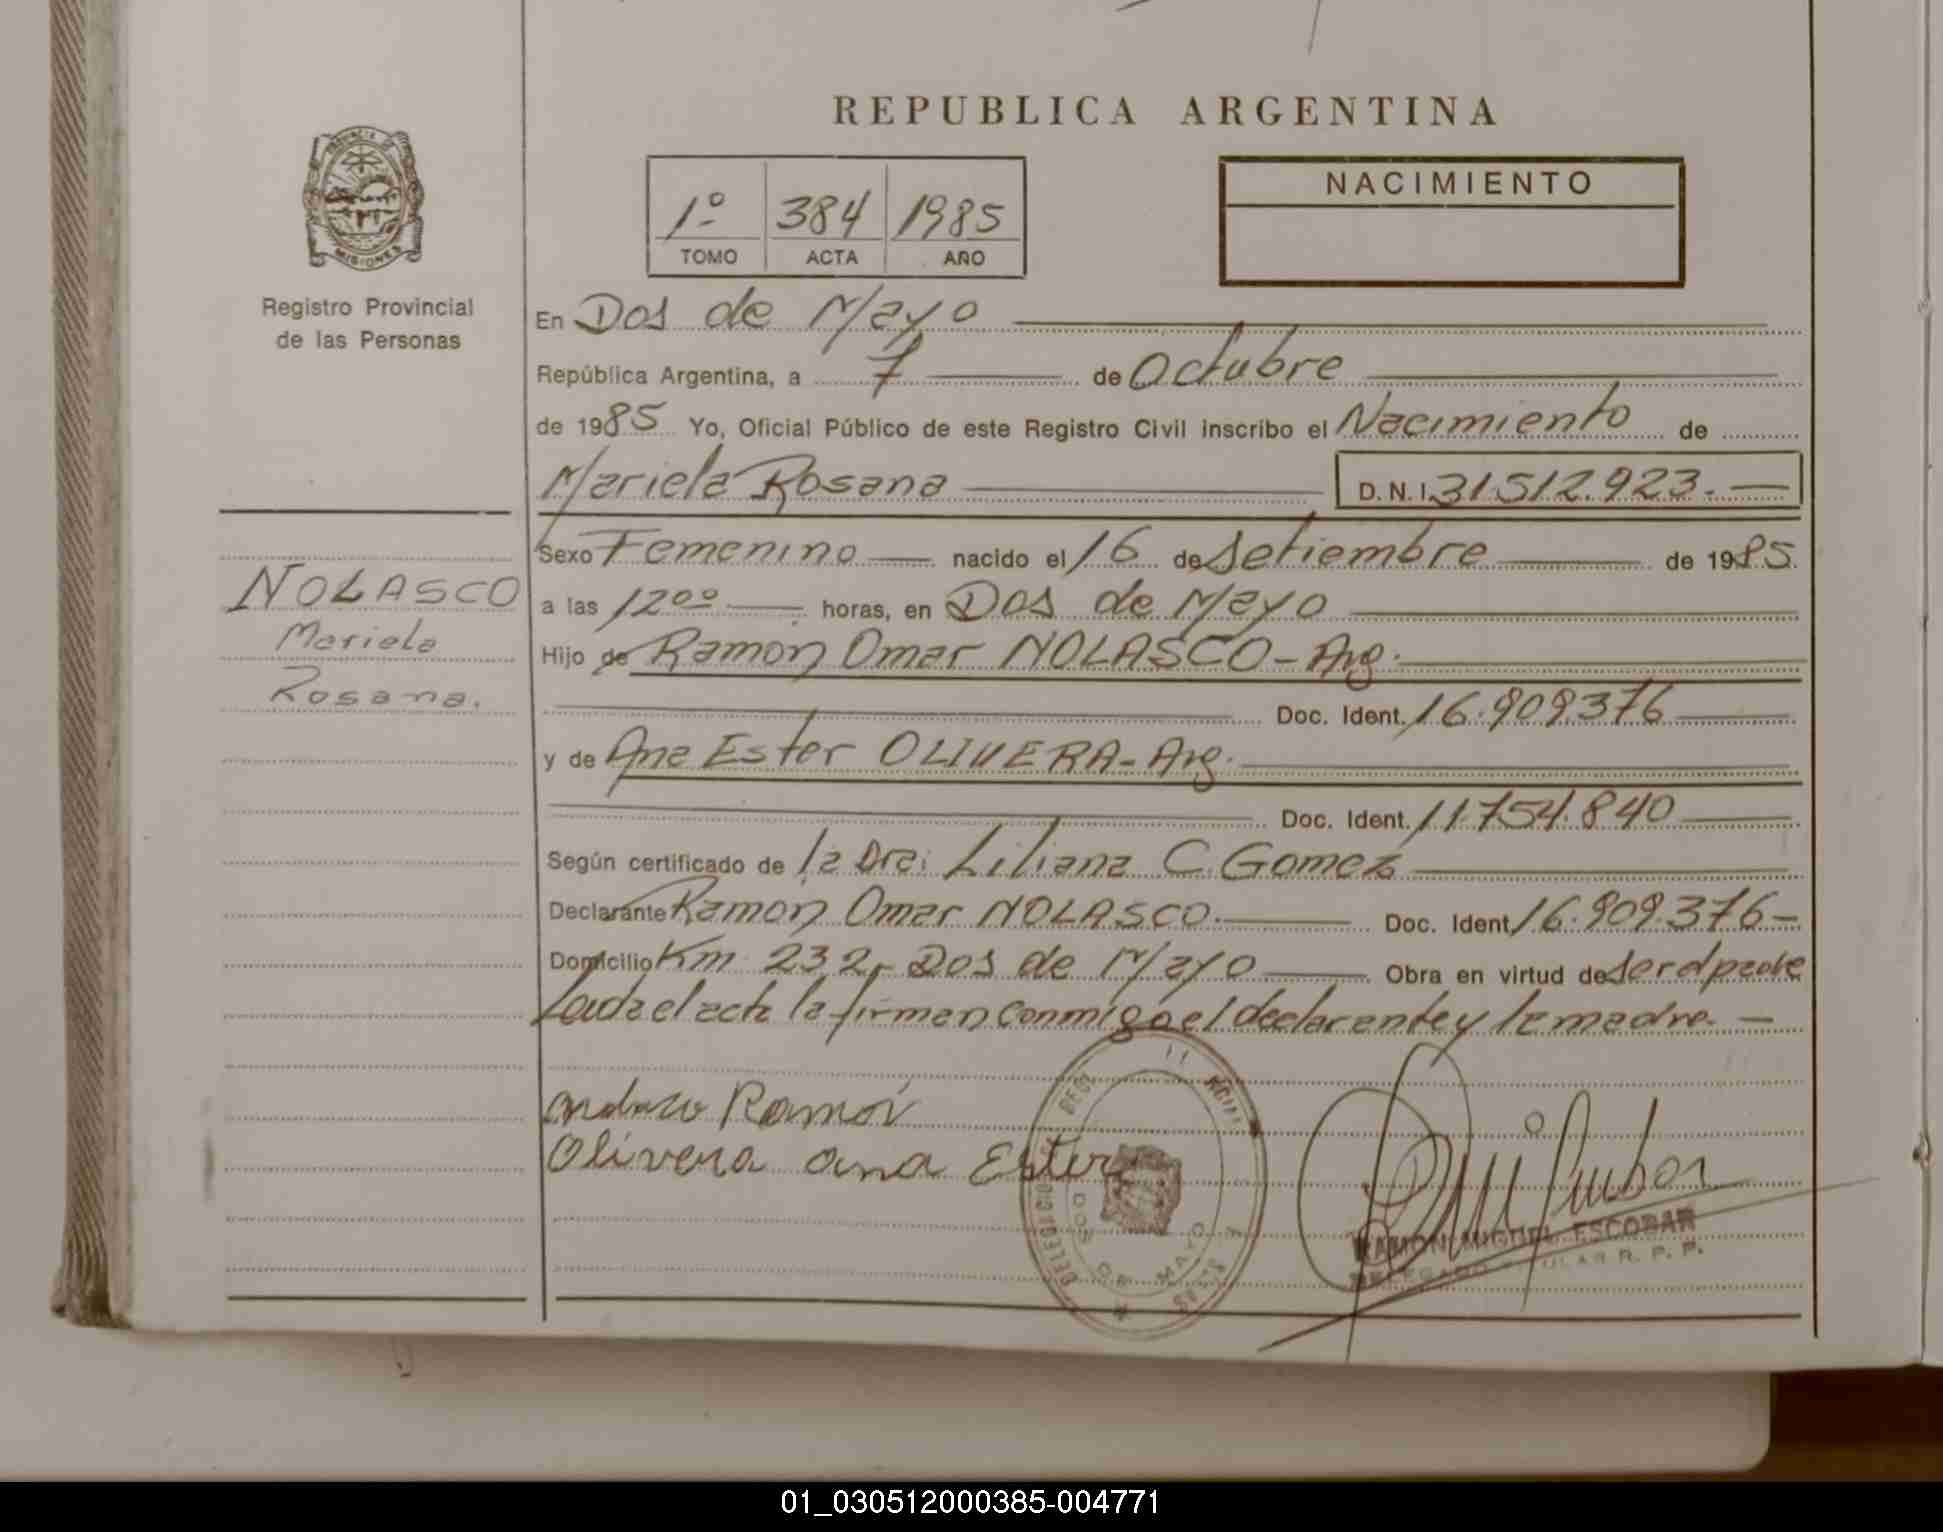 REPUBLICA ARGENTINA
PROVINCIA DE MISIONES
Registro Provincial
de las Personas
1º 384 1985
TOMO ACTA AÑO
NACIMIENTO
En Dos de Mayo
República Argentina, a 7 de Octubre
de 1985 Yo, Oficial Público de este Registro Civil inscribo el Nacimiento de
Mariela Rosana D. N. I. 31.512.923.-
Sexo Femenino nacido el 16 de Setiembre de 1985.
a las 12ºº horas, en Dos de Mayo
Hijo de Ramon Omar NOLASCO - Arg.
Doc. Ident. 16.909.376
y de Ana Ester OLIVERA - Arg.
Doc. Ident. 11.754.840
Según certificado de la Dra: Liliana C. Gomez
Declarante Ramon Omar NOLASCO. Doc. Ident. 16.909.376-
Domicilio Km 232, Dos de Mayo Obra en virtud de ser el padre
Leída el acta la firman conmigo el declarante y la madre. -
NOLASCO
Mariela
Rosana.
Ramón
Olivera ana Ester
DOS DE MAYO
RAMON MIGUEL ESCOBAR
DELEGADO TITULAR R. P. P.
01_030512000385-004771